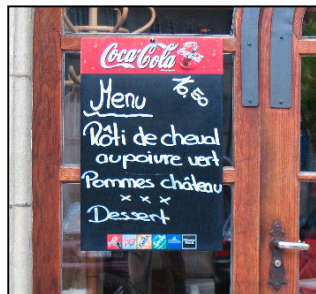 Coca-Cola
16.50
Menu
Rôti de cheval
au poivre vert
Pommes château
x x x
Dessert